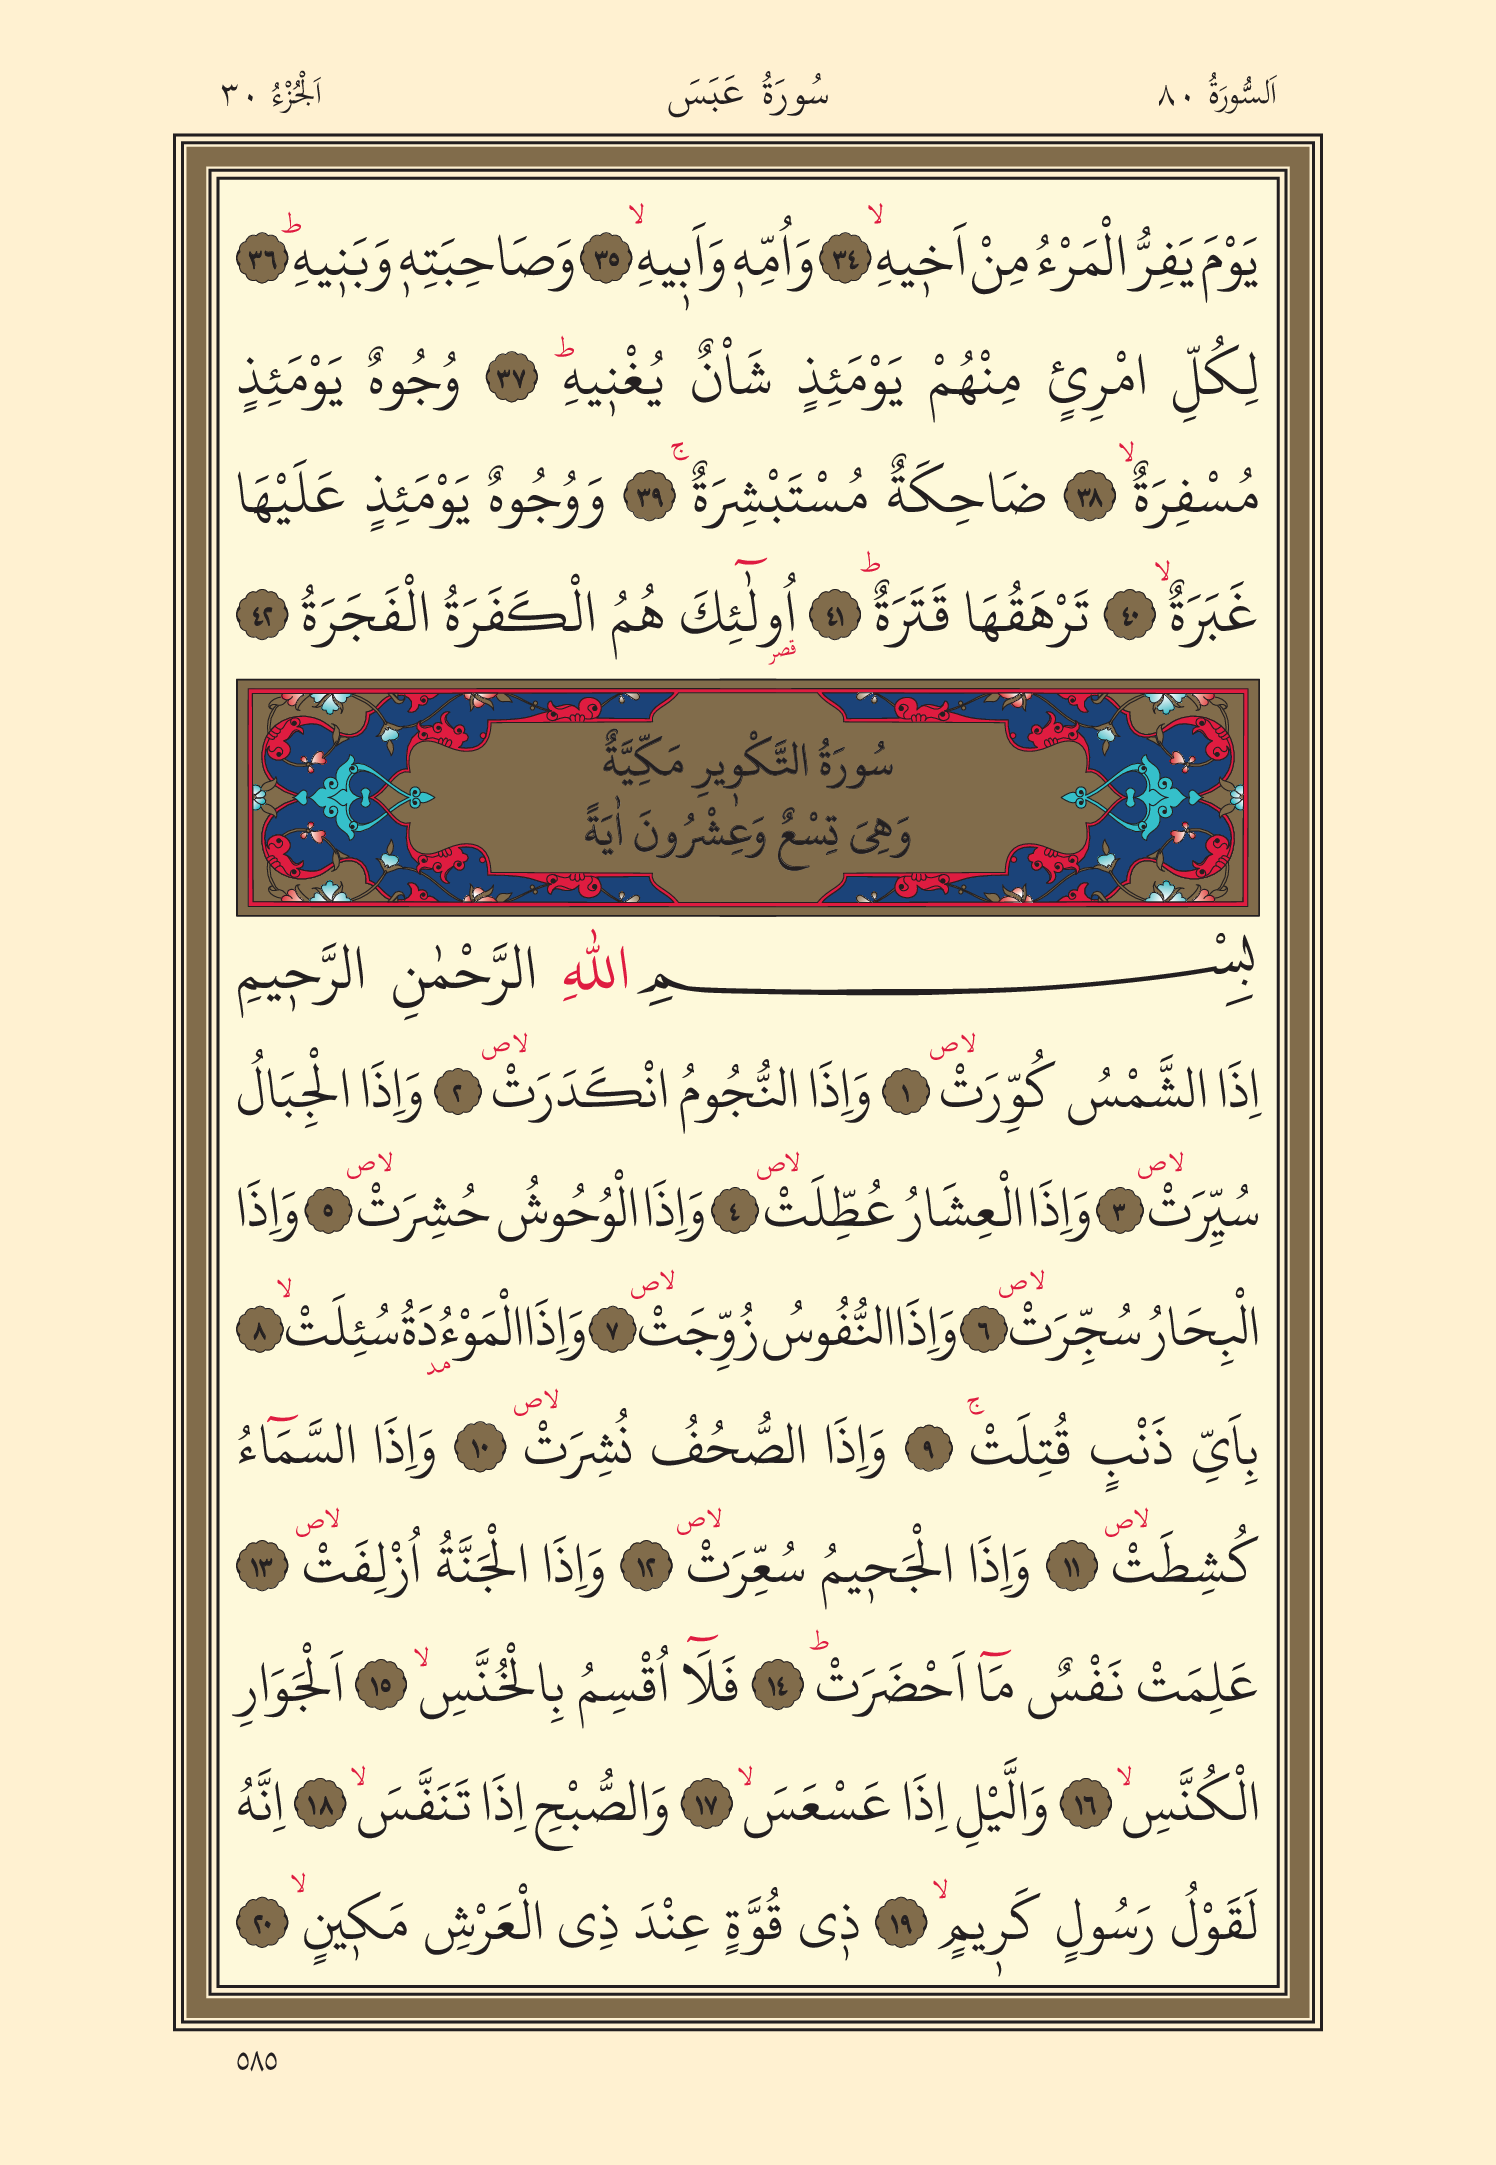 اَلسُّورَةُ ٨٠ سُورَةُ عَبَسَ اَلْجُزْءُ ٣٠
يَوْمَ يَفِرُّ الْمَرْءُ مِنْ اَخ۪يهِ لا ٣٤ وَاُمِّه۪ وَاَب۪يهِ لا ٣٥ وَصَاحِبَتِه۪ وَبَن۪يهِ ط ٣٦
لِكُلِّ امْرِئٍ مِنْهُمْ يَوْمَئِذٍ شَاْنٌ يُغْن۪يهِ ط ٣٧ وُجُوهٌ يَوْمَئِذٍ
مُسْفِرَةٌ لا ٣٨ ضَاحِكَةٌ مُسْتَبْشِرَةٌ ج ٣٩ وَوُجُوهٌ يَوْمَئِذٍ عَلَيْهَا
غَبَرَةٌ لا ٤٠ تَرْهَقُهَا قَتَرَةٌ ط ٤١ اُو۬لٰٓئِكَ قصر هُمُ الْكَفَرَةُ الْفَجَرَةُ ٤٢
سُورَةُ التَّكْو۪يرِ مَكِّيَّةٌ
وَهِىَ تِسْعٌ وَعِشْرُونَ اٰيَةً
بِسْمِ اللّٰهِ الرَّحْمٰنِ الرَّح۪يمِ
اِذَا الشَّمْسُ كُوِّرَتْ لاص ١ وَاِذَا النُّجُومُ انْكَدَرَتْ لاص ٢ وَاِذَا الْجِبَالُ
سُيِّرَتْ لاص ٣ وَاِذَا الْعِشَارُ عُطِّلَتْ لاص ٤ وَاِذَا الْوُحُوشُ حُشِرَتْ لاص ٥ وَاِذَا
الْبِحَارُ سُجِّرَتْ لاص ٦ وَاِذَا النُّفُوسُ زُوِّجَتْ لاص ٧ وَاِذَا الْمَوْءُ۫دَةُ مد سُئِلَتْ لا ٨
بِاَىِّ ذَنْبٍ قُتِلَتْ ج ٩ وَاِذَا الصُّحُفُ نُشِرَتْ لاص ١٠ وَاِذَا السَّمَٓاءُ
كُشِطَتْ لاص ١١ وَاِذَا الْجَح۪يمُ سُعِّرَتْ لاص ١٢ وَاِذَا الْجَنَّةُ اُزْلِفَتْ لاص ١٣
عَلِمَتْ نَفْسٌ مَٓا اَحْضَرَتْ ط ١٤ فَلَٓا اُقْسِمُ بِالْخُنَّسِ لا ١٥ اَلْجَوَارِ
الْكُنَّسِ لا ١٦ وَالَّيْلِ اِذَا عَسْعَسَ لا ١٧ وَالصُّبْحِ اِذَا تَنَفَّسَ لا ١٨ اِنَّهُ
لَقَوْلُ رَسُولٍ كَر۪يمٍ لا ١٩ ذ۪ى قُوَّةٍ عِنْدَ ذِى الْعَرْشِ مَك۪ينٍ لا ٢٠
٥٨٥